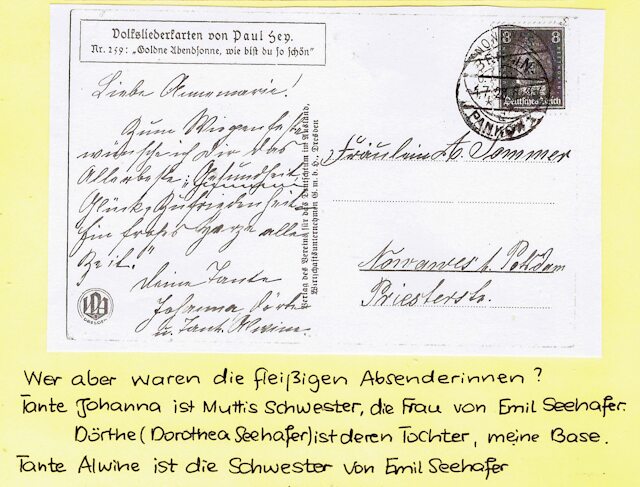 Volksliederkarten von Paul Hey.
Nr. 159: „Goldne Abendsonne, wie bist du so schön"
Liebe Annemarie!
Zum Wiegenfeste
wünsche ich Dir das
Allerbeste: „Gesundheit,
Glück, Zufriedenheit
Ein frohes Herz alle
Zeit."
Deine Tante
Johanna, Dörte
u. Tante Alwine.
Verlag des Vereins für das Deutschtum im Ausland,
Wirtschaftsunternehmen G. m. b. H., Dresden
8 8
Deutsches Reich
BERLIN
PANKOW
Fräulein A. Sommer
Nowawes b. Potsdam
Priesterstr.
VDA
DRESDEN
Wer aber waren die fleißigen Absenderinnen?
Tante Johanna ist Muttis Schwester, die Frau von Emil Seehafer.
Dörthe (Dorothea Seehafer) ist deren Tochter, meine Base.
Tante Alwine ist die Schwester von Emil Seehafer